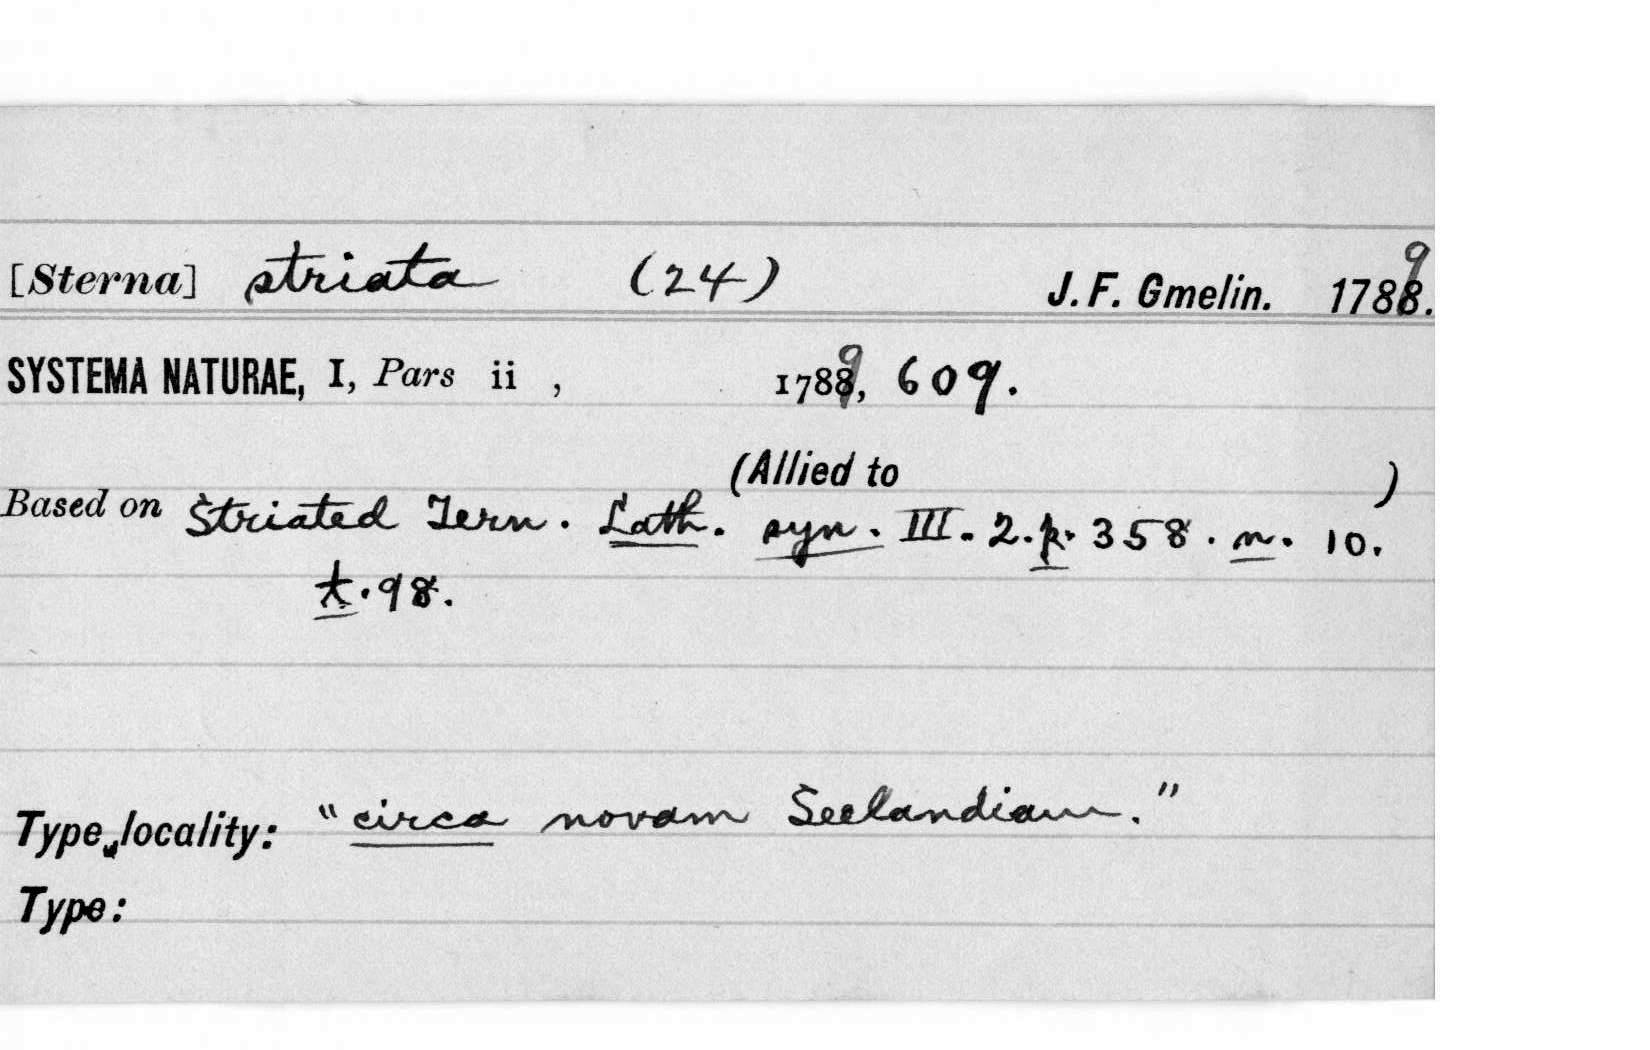 [Sterna] striata (24) J. F. Gmelin. 1789.
SYSTEMA NATURAE, I, Pars ii , 1789, 609.
(Allied to )
Based on Striated Tern. Lath. syn. III. 2. p. 358. n. 10.
t. 98.
Type locality: "circa novam Seelandiam."
Type: